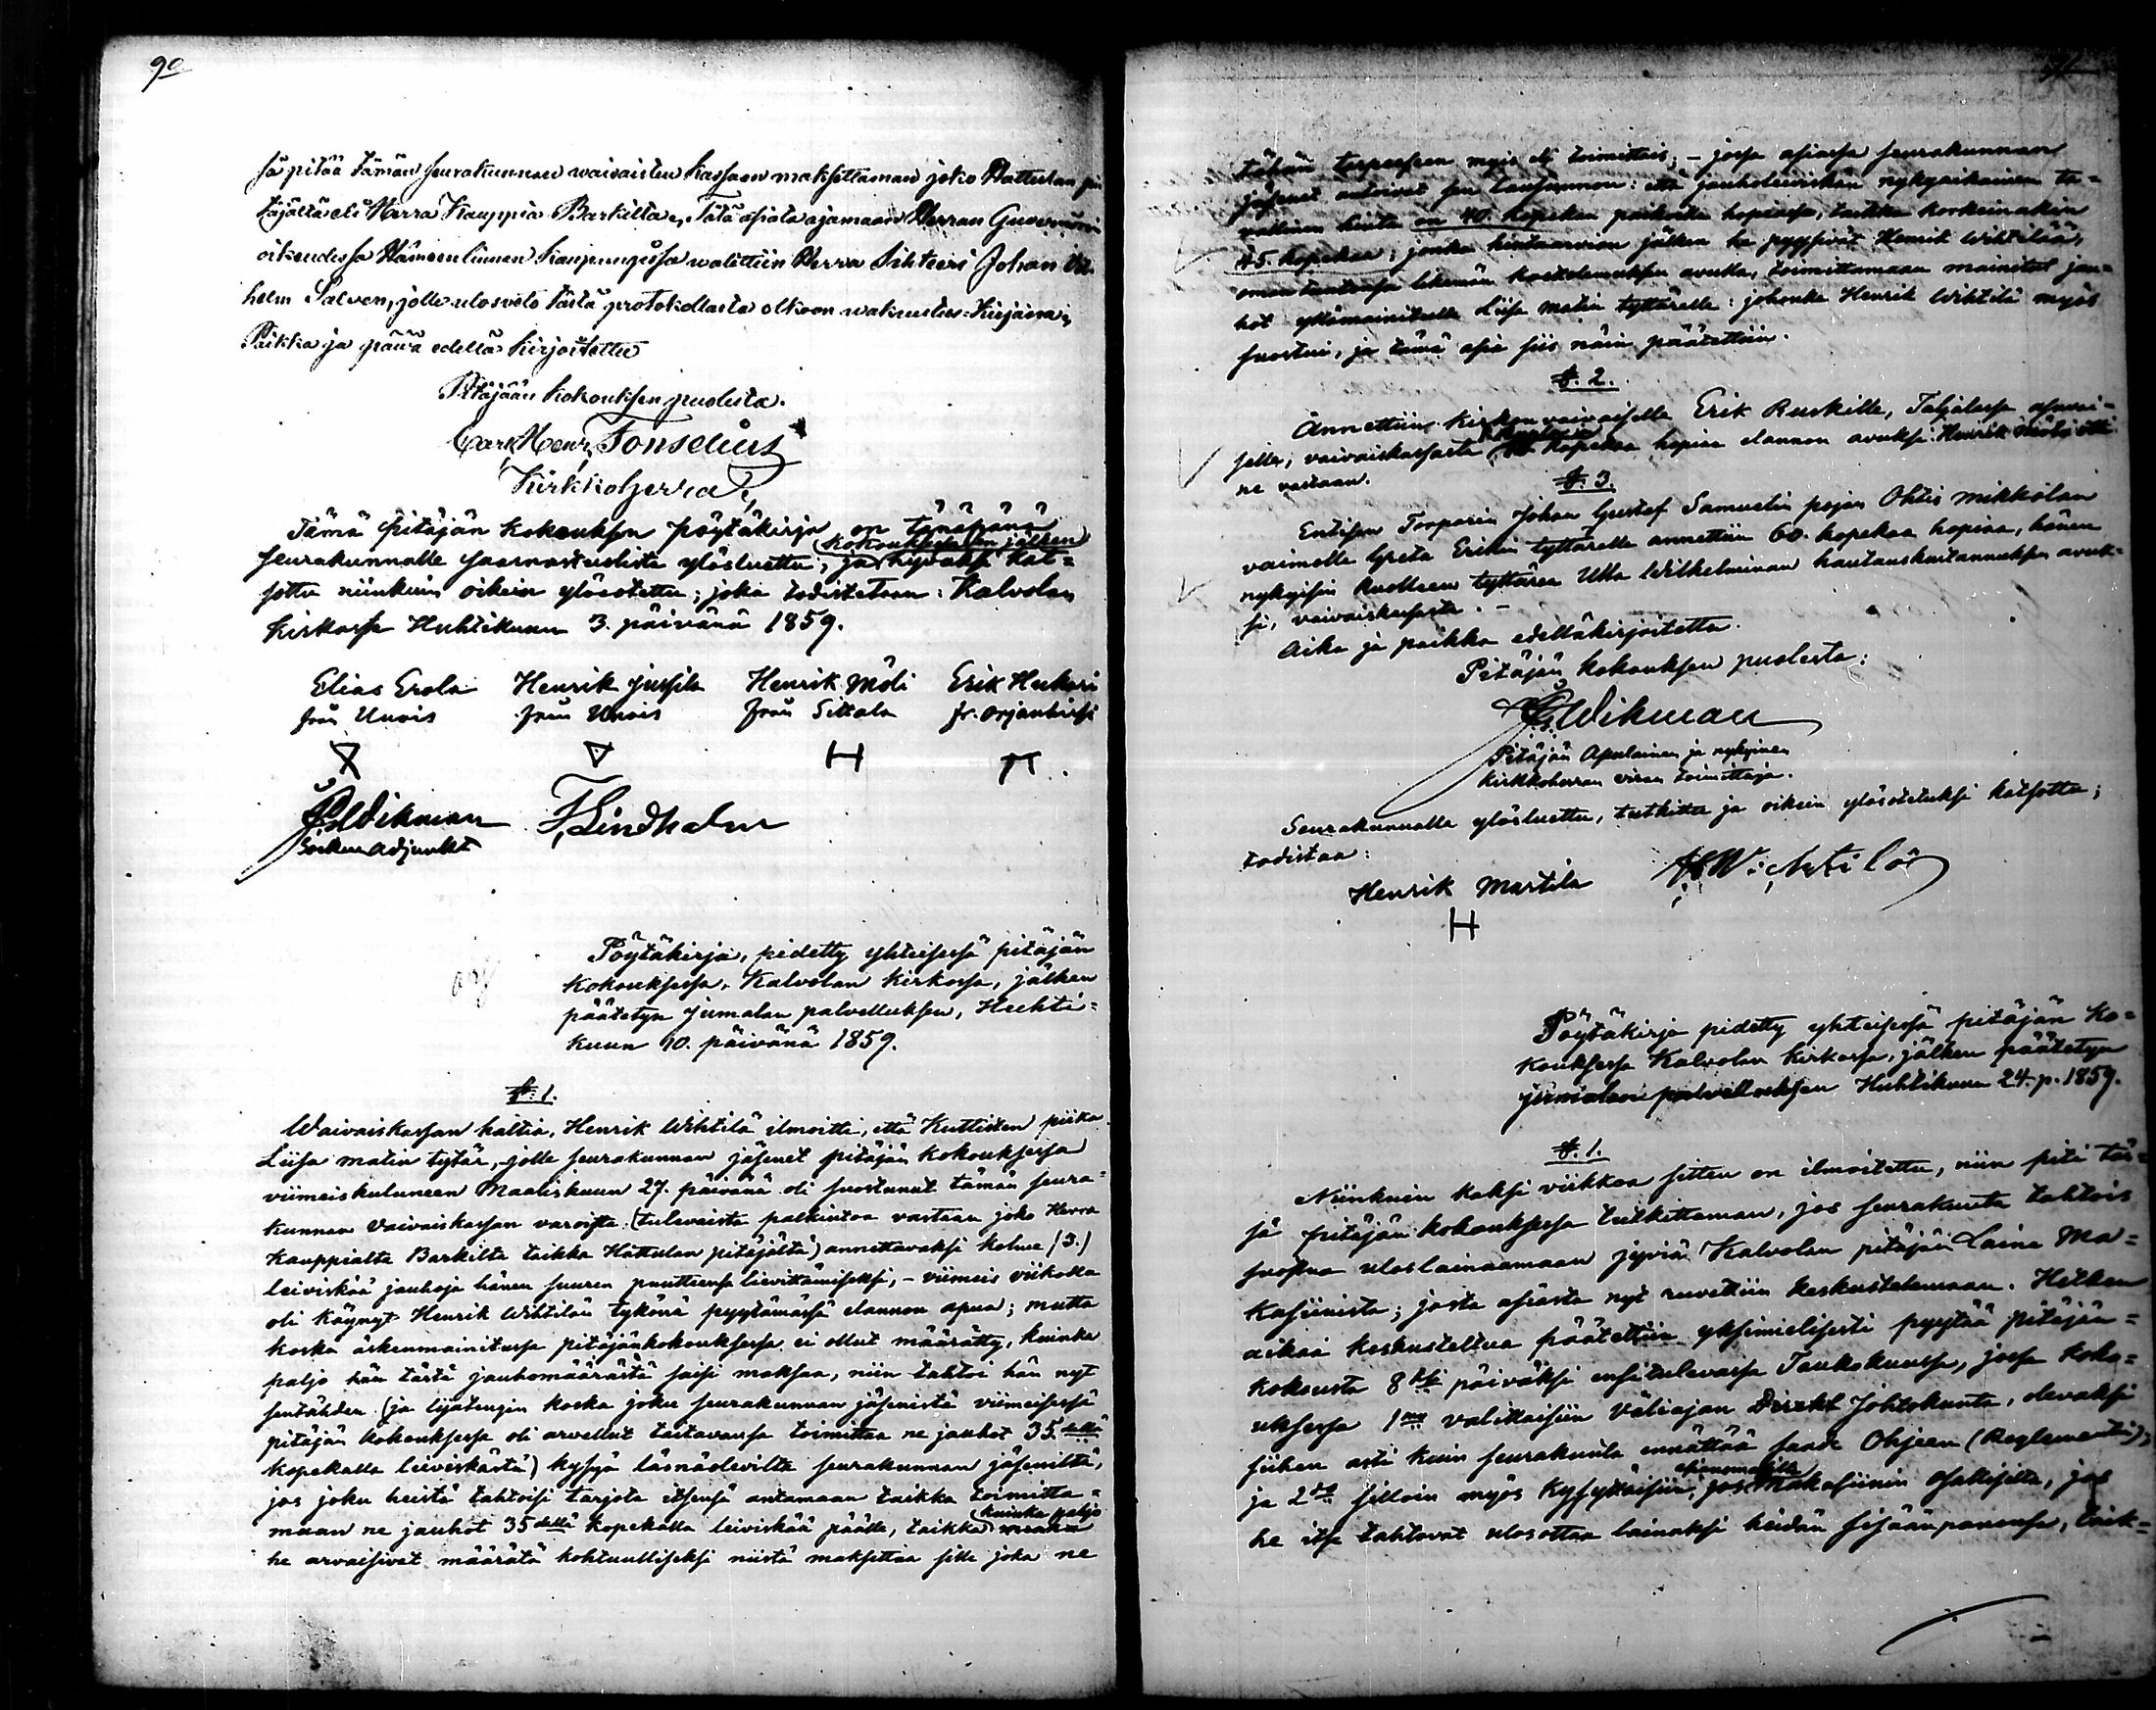 90
sä pitää tämän seurakunnan waivaisten kassaan maksettaman joko Hattulan pi
täjältä eli Herra Kauppia Barkilta, Tätä asiata ajamaan Herran Guvernöri
oikeudessa Hämeenlinnan kaupungissa walittiin Herra Sihteeri Johan Vil
helm Salven, jolle ulosveto tästä protokollasta olkoon wakuutus-Kirjana,
Paikka ja päiwä edellä kirjoitettu
Pitäjään kokouksen puolesta.
Carl Henr Fonselius
Kirkkoherra
Tämä pitäjän kokouksen pöytäkirja on tänäpänä
kokouksetulon jälken
seurakunnalle saarnastuolista ylösluettu, ja hyväksi kat=
sottu niinkuin oikein ylösotettu; joka todistetaan: Kalvolan
kirkossa Huhtikuun 3. päivänä 1859.
Elias Erola Henrik Jussila Henrik Möli Erik Hukari
från Unois från Unois från Sittala fr. Orjanhirsi
H
JGWikman F, Lindholm
Socken adjunkt
Pöytäkirja, pidetty yhteisessä pitäjän
kokouksessa, Kalvolan kirkossa, jälken
päätetyn jumalan palvelluksen, Huhti=
kuun 10. päivänä 1859.
§. 1.
Waivaiskassan haltia, Henrik Wihtilä ilmoitti, että Kuttisten piika
Liisa Matin tytär, jolle seurakunnan jäsenet pitäjän kokouksessa
viimeiskuluneen Maaliskuun 27. päivänä oli suostunut tämän seura=
kunnan Vaivaiskassan varoista (tulevaista palkintoa vastaan joko Herra
Kauppialta Barkilta taikka Hattulan pitäjältä) annettavaksi kolme (3.)
leiviskää jauhoja hänen suuren puuttensa lievittämiseksi, – viimeis viikolla
oli käynyt Henrik Wihtilän tykönä pyytämässä elannon apua; mutta
koska äskenmainitussa pitäjänkokouksessa ei ollut määrätty, kuinka
paljo hän tästä jauhomäärästä saisi maksaa, niin tahtoi hän nyt
sentähden (ja lijatengin koska joku seurakunnan jäsenistä viimeisessä
pitäjän kokouksessa oli arvellut taitavansa toimittaa ne jauhot 35della
kopekalla leiviskästä) kysyä läsnäolevilta seurakunnan jäseniltä,
jos joku heistä tahtoisi tarjota itsensä antamaan taikka toimitta=
kuinka paljo
maan ne jauhot 35dellä kopekalla leiviskää päälle, taikka
he arvaisivat määrätä kohtuulliseksi niistä maksettaa sille joka ne
tähän tarpeeseen myis eli toimittais; – jossa asiassa seurakunnan
jäsenet antoivat sen lausunnon: että jauholeiviskän nykyaikainen ta=
vallinen hinta on 40. kopekan paikoilla hopiassa, taikka korkeinakin
45 kopekaa; jonka hintaarvion jälken he pyysivät Henrik Wihtilää,
oman tuntonsa likemän koettelemuksen avulla, toimittamaan mainitut jau=
hot yllämainitulle Liisa Matin tyttärelle: johonka Henrik Wihtilä myös
suostui, ja tämä asia siis näin päätettiin.
§. 2.
Annettiin kirkon vaivaiselle Erik Ruskille, Taljalassa asuvai=
selle, vaivaiskassasta kopekaa hopiaa elannon avuksi. Henrik otti
ne vastaan.
§. 3.
Entisen Torparin Johan Gustaf Samuelin pojan Ohtis Mikkolan
vaimolle Greta Erikin tyttärelle annettiin 60. kopekaa hopiaa, hänen
nykyisin kuolleen tyttären Ulla Wilhelminan hautauskustannuksen avuk=
si, vaivaiskassasta. –
Aika ja paikka edelläkirjoitettu.
Pitäjän kokouksen puolesta:
JGWikman
Pitäjän Apulainen ja nykyinen
kirkkoherran viran toimittaja.
Seurakunnalle ylösluettu, tutkittu ja oikein ylösotetuksi katsottu;
todistaa:
Henrik Marttila HWichtilä
H
Pöytäkirja pidetty yhteisessä pitäjän ko=
kouksessa Kalvolan kirkossa, jälken päätetyn
jumalan palvelluksen Huhtikuun 24. p. 1859.
§. 1.
Niinkuin kaksi viikkoa sitten on ilmoitettu, niin piti täs=
sä pitäjän kokouksessa tutkittaman, jos seurakunta tahtois
suostua uloslainaamaan jyviä Kalvolan pitäjän Laina Ma=
kasiinista; josta asiasta nyt ruvettiin keskustelemaan. Hetken
aikaa keskusteltua päätettiin yksimielisesti pyytää pitäjän=
kokousta 8ksi päiväksi ensitulevassa Toukokuussa, jossa koko=
uksessa 1mo valittaisiin Väliajan Direkt Johtokunta, olevaksi
siihen asti kuin seurakunta ennättää saada Ohjeen (Reglementin);
ja 2do silloin myös kysyttäisiin, jos Makasiinin osallisilta, jos
he itse tahtovat ulosottaa lainaksi heidän sisäänpanonsa, taik=